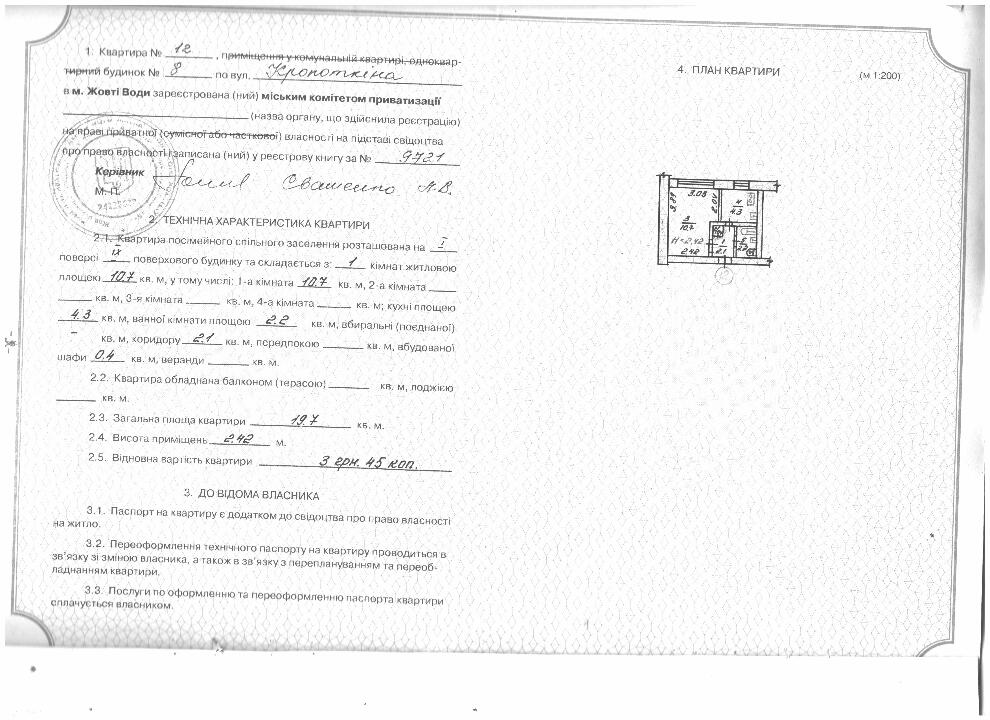 1. Квартира № 12 , приміщення у комунальній квартирі, одноквар-
тирний будинок № 8 по вул. Кропоткіна
в м. Жовті Води зареєстрована (ний) міським комітетом приватизації
(назва органу, що здійснила реєстрацію)
на праві приватної (сумісної або часткової) власності на підставі свідоцтва
про право власності і записана (ний) у реєстрову книгу за № 9721
Керівник
М. П.
2. ТЕХНІЧНА ХАРАКТЕРИСТИКА КВАРТИРИ
2.1. Квартира посімейного спільного заселення розташована на I
поверсі IX поверхового будинку та складається з: 1 кімнат житловою
площею 10.7 кв. м, у тому числі: 1-а кімната 10.7 кв. м, 2-а кімната
кв. м, 3-я кімната кв. м, 4-а кімната кв. м; кухні площею
4.3 кв. м, ванної кімнати площею 2.2 кв. м, вбиральні (поєднаної)
– кв. м, коридору 2.1 кв. м, передпокою кв. м, вбудованої
шафи 0.4 кв. м, веранди кв. м.
2.2. Квартира обладнана балконом (терасою) кв. м, лоджією
кв. м.
2.3. Загальна площа квартири 19.7 кв. м.
2.4. Висота приміщень 2.42 м.
2.5. Відновна вартість квартири 3 грн. 45 коп.
3. ДО ВІДОМА ВЛАСНИКА
3.1. Паспорт на квартиру є додатком до свідоцтва про право власності
на житло.
3.2. Переоформлення технічного паспорту на квартиру проводиться в
зв'язку зі зміною власника, а також в зв'язку з переплануванням та переоб-
ладнанням квартири.
3.3. Послуги по оформленню та переоформленню паспорта квартири
сплачується власником.
4. ПЛАН КВАРТИРИ (м 1:200)
3.05
4
4.3
3
10.7
H=2.42
1
2.1
2.42